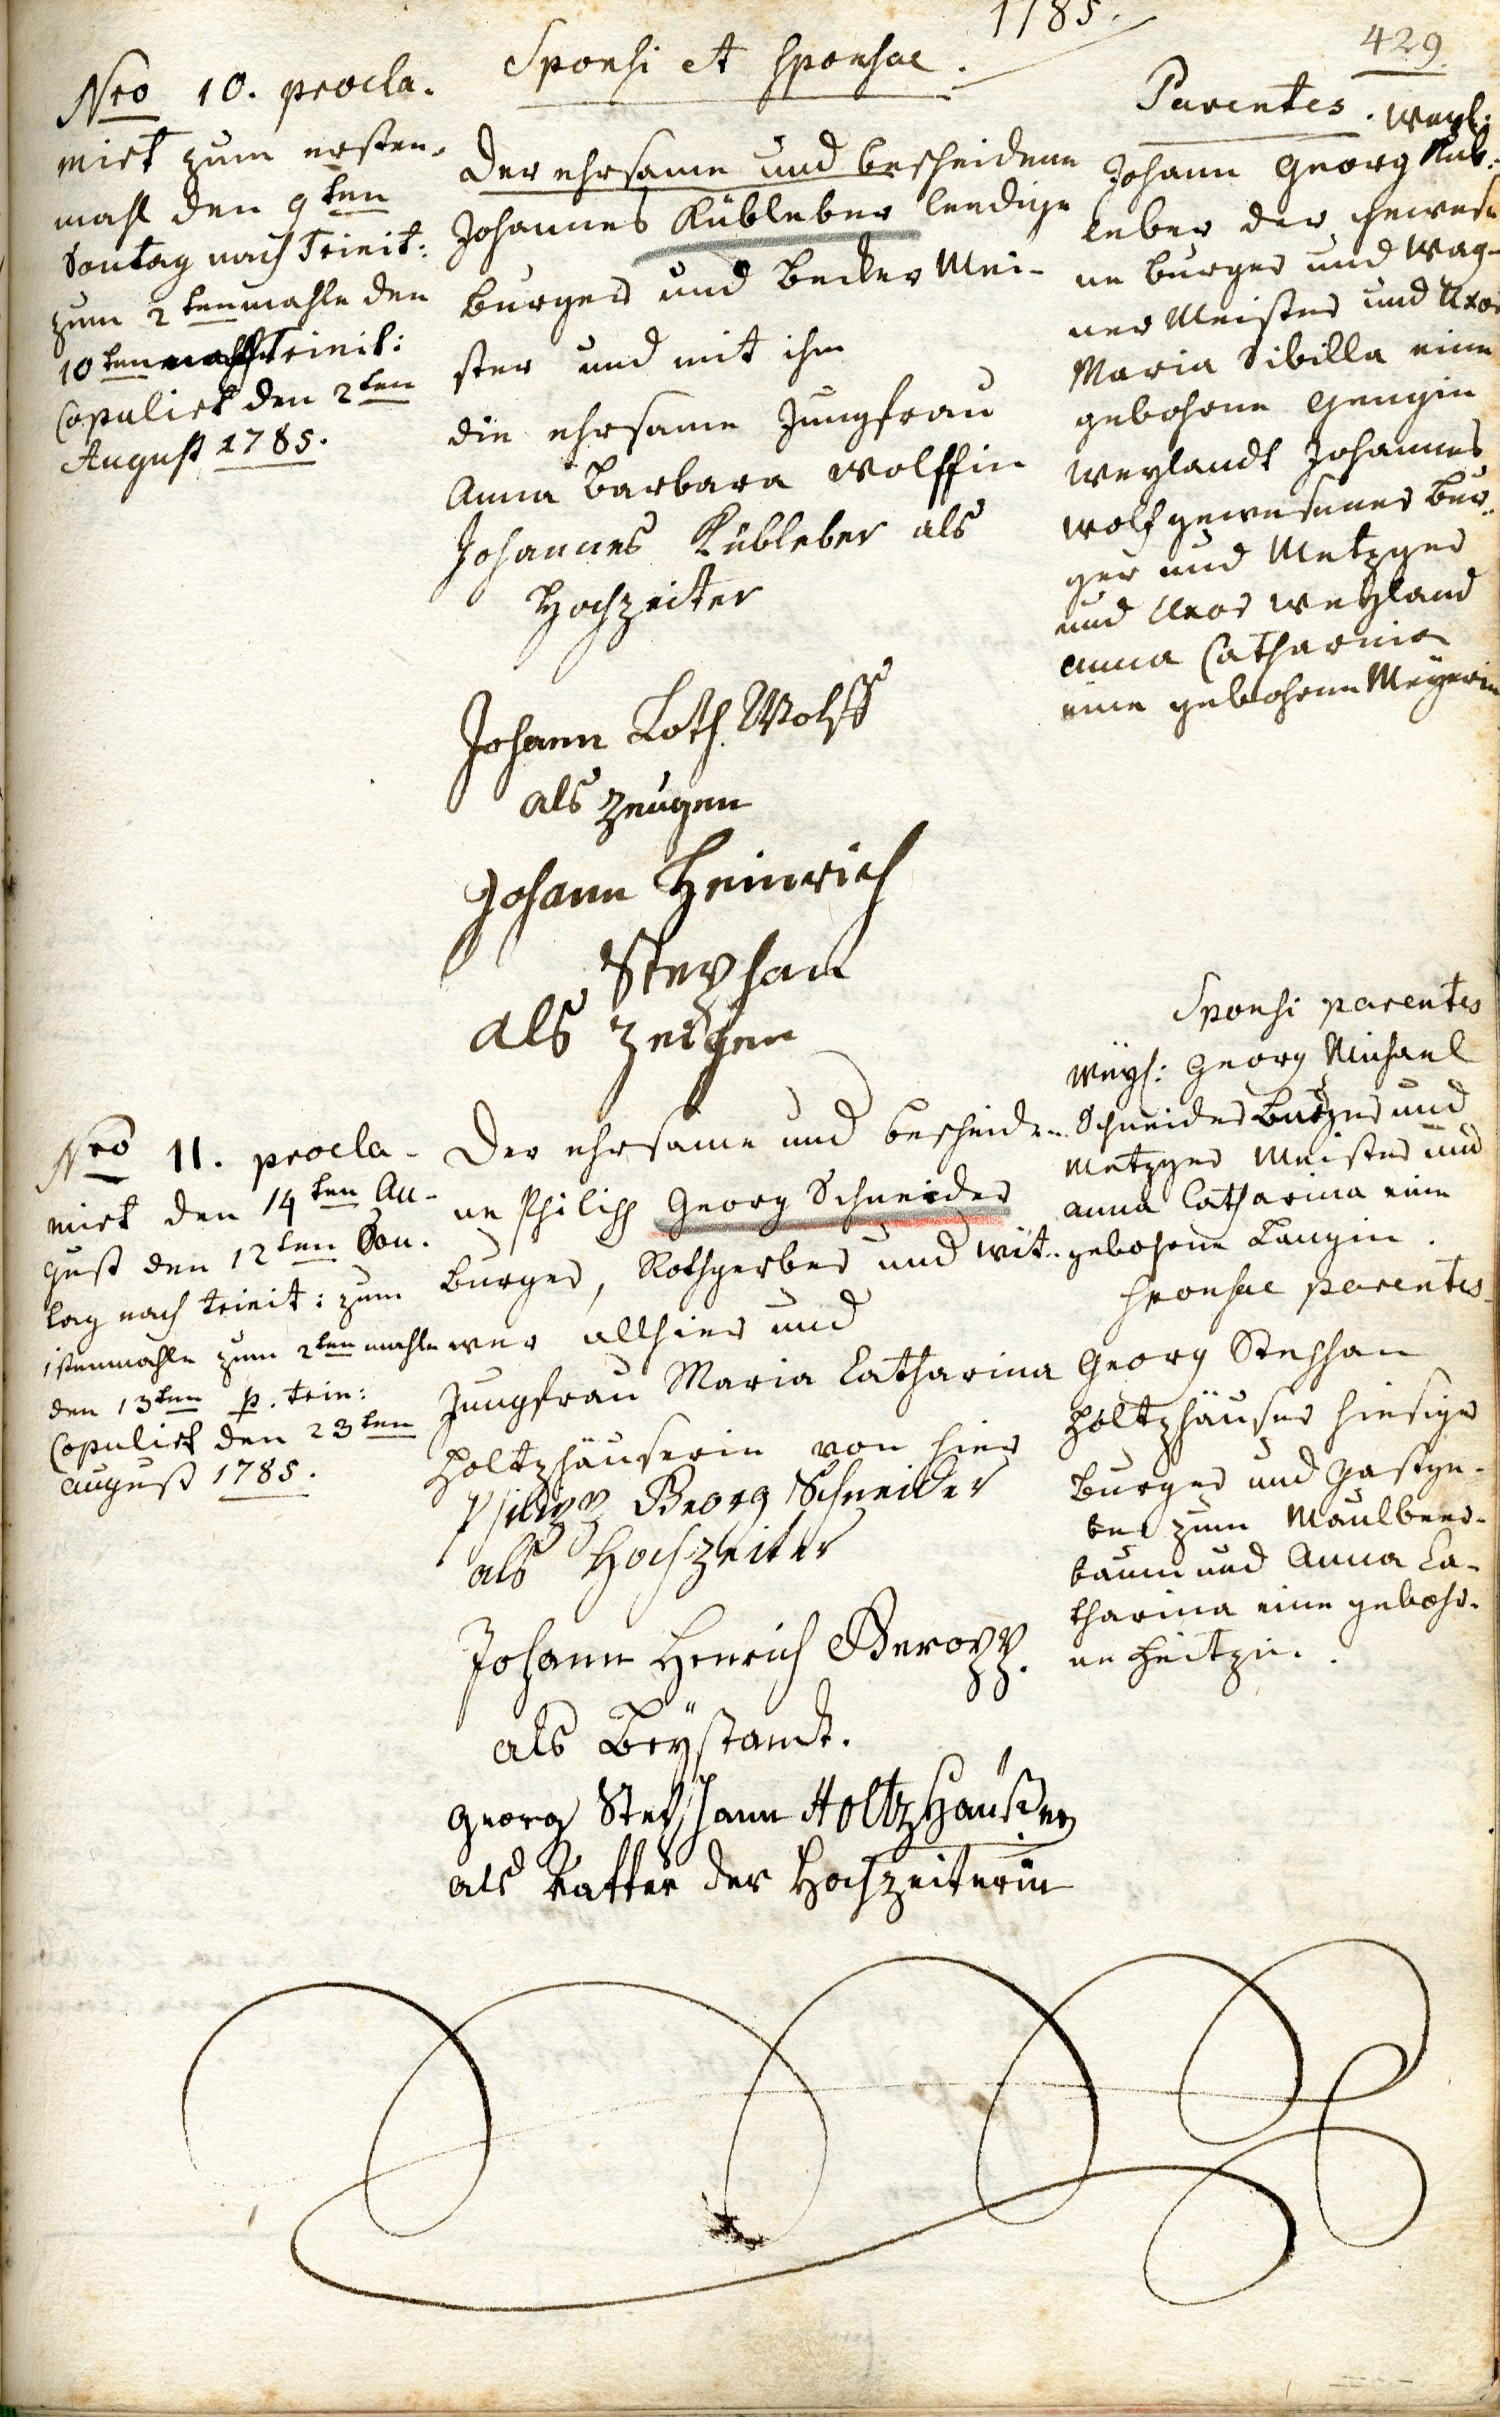 1785.
429
Sponsi et Sponsae.
Parentes.
Nro 10. procla-
mirt zum ersten-
mahl den 9ten
Sontag nach Trinit:
zum 2tenmahle den
10ten nach Trinit:
Copulirt den 2ten
August 1785.
Der ehrsame und bescheidene
Johannes Kübleber leedige
burger und Becker Mei-
ster und mit ihm
die ehrsame Jungfrau
Anna Barbara Wolffin
Johannes Kübleber als
Hochzeiter
Johann Loth. Wolff
als Zeugen
Johann Heinrich
Stephan
als Zeigen
weyl:
Johann Georg Küb-
leber der gewese
ne burger und Wag-
ner Meister und Uxor
Maria Sibilla eine
gebohrne Gengin
weylandt Johannes
Wolf gewesener Bur-
ger und Metzger
und Uxor weyland
Anna Catharina
eine gebohrne Meyerin
Nro 11. procla-
mirt den 14ten Au-
gust den 12ten Son-
tag nach trinit: zum
1stenmahle zum 2ten mahle
den 13ten p. trin:
Copulirt den 23ten
August 1785.
Der ehrsame und bescheide-
ne Philipp Georg Schneider
burger, Rothgerber und Wit-
wer allhier und
Jungfrau Maria Catharina
Holtzhäuserin von hier
Philipp Georg Schneider
als Hochzeiter
Johann Henrich Gropp.
als Beystandt.
Georg Stephann Holtzhäußer
als Vatter der Hochzeiterin
Sponsi parentes
weyl: Georg Michael
Schneider Burger und
Metzger Meister und
Anna Catharina eine
gebohrne Langin.
Sponsae parentes
Georg Stephan
Holtzhäuser hiesiger
Burger und Gastge-
ber zum Maulbeer-
baum und Anna Ca-
tharina eine gebohr-
ne Heitzin.